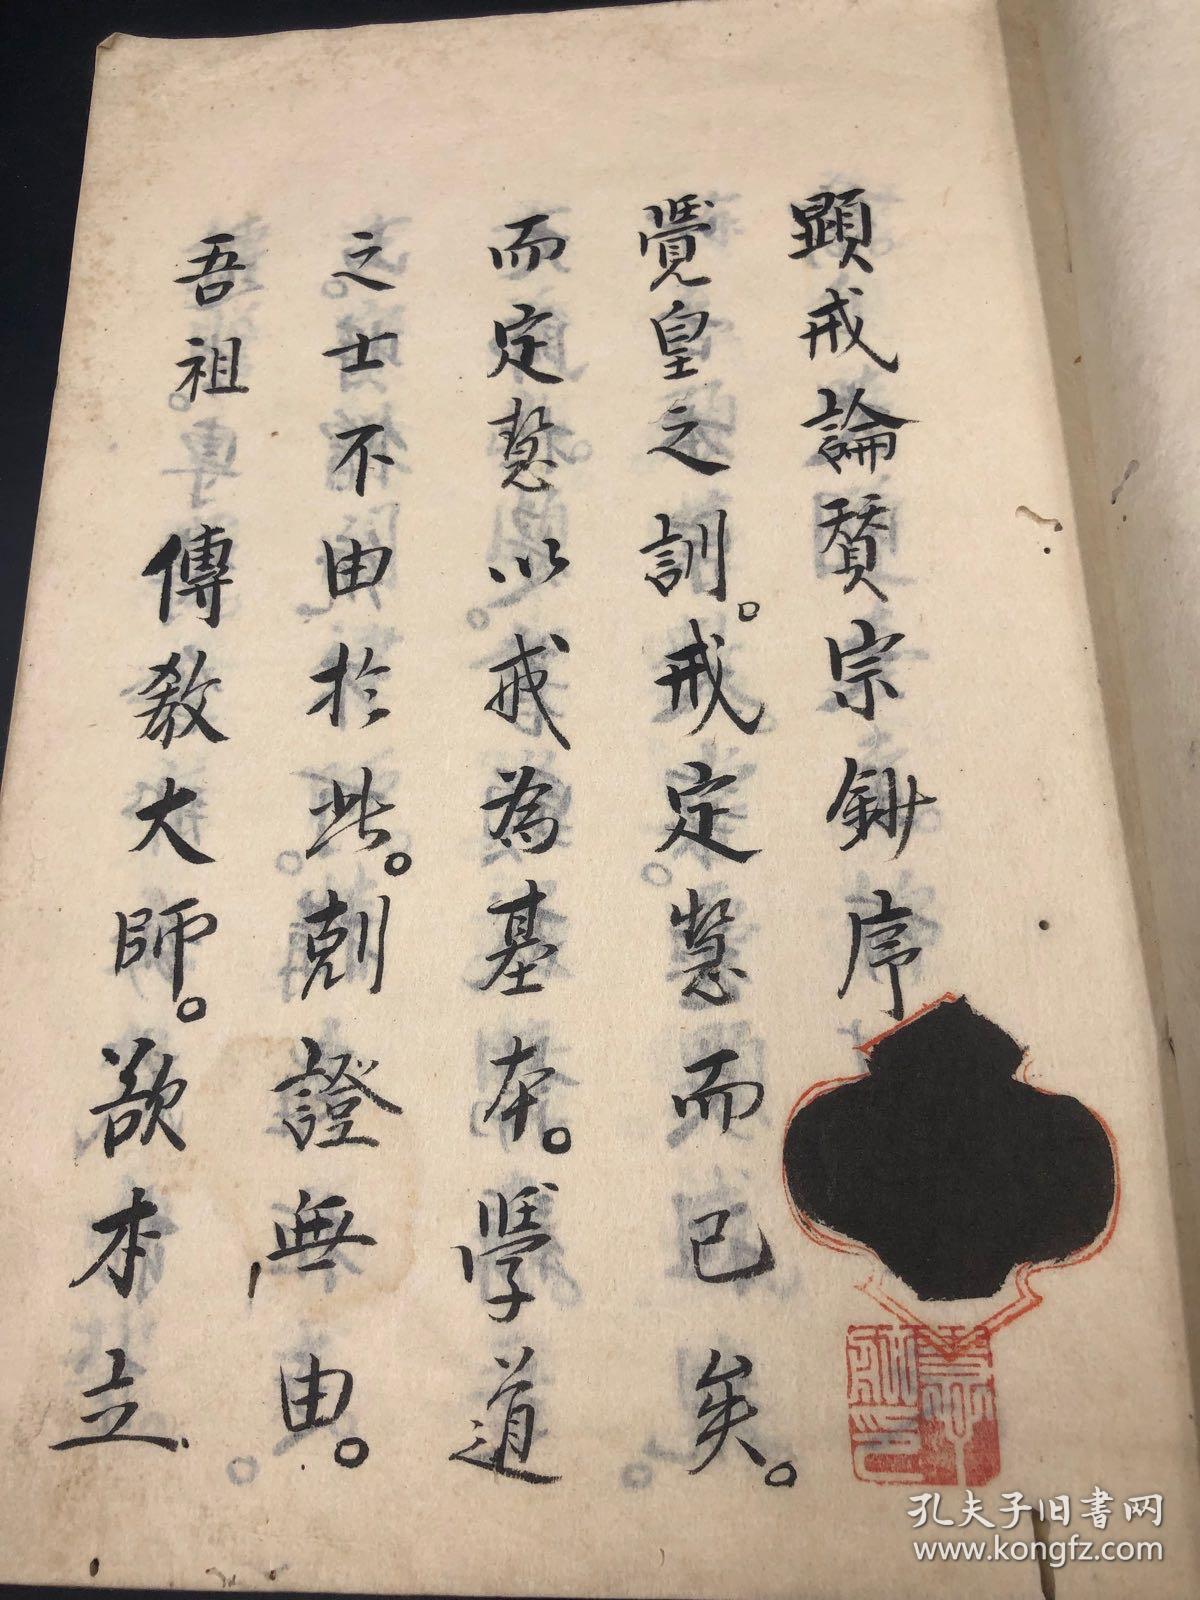 顕戒論賛宗鈔序
覺皇之訓。戒定慧而已矣。
而定慧以戒為基本。學道
之士不由於此。剋證無由。
吾祖。傳教大師。欲本立
孔夫子旧书网
www.kongfz.com